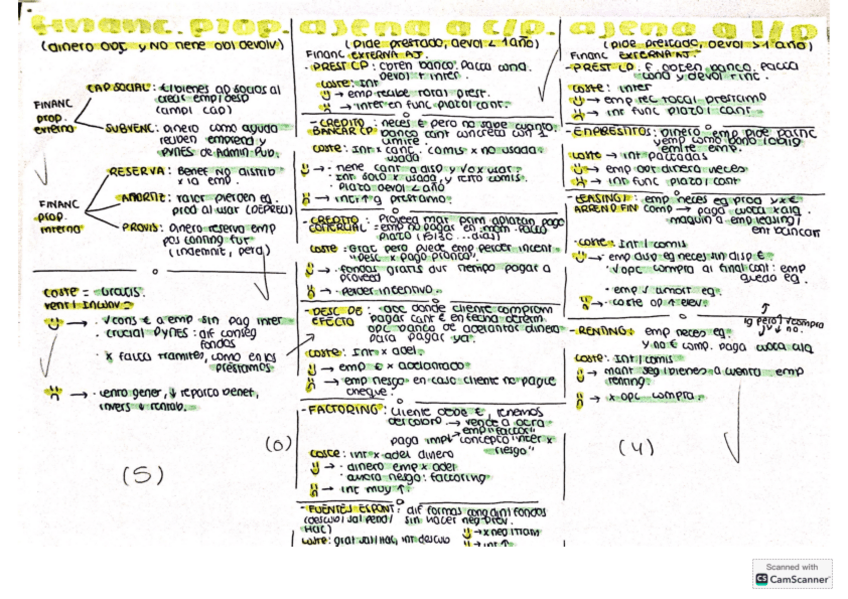 financ. prop.
(dinero obj y NO tiene obl devolv)
FINANC prop. externa
CAP SOCIAL: €/bienes ap socios al
crear emp/desp
(ampl cap)
SUBVENC: dinero como ayuda
reciben emprend y
PYNES de Admin Pub.
FINANC prop. interna
RESERVA: Benef NO distrib
x la emp.
AMORTIZ: valor pierden eq.
prod al usar (DEPREC)
PROVIS: Dinero reserva emp
pos conting fut
(indemniz, perd)
COSTE = Gratis.
vent/inconv =
→ √cons € a emp sin pag inter
· crucial PYNES: dif conseg
fondos
· x falta tramites, como en los
préstamos
→ · lento gener, ↓ reparto benef,
invers ↓ rentab.
(5)
ajena a c/p.
(pide prestado, devol < 1 año)
FINANC EXTERNA AJ.
- PREST CP: obten banco. Pacta cond.
devol + inter.
coste: Int
→ emp recibe total prest.
→ inter en func plazo/cant.
- CREDITO BANCAR CP: neces € pero no sabe cuanto.
banco cant concreta con 1
limite
coste: Int x cant usada · comis x no usada.
→ · tiene cant a disp y √ox usar
· Int solo x usada, y resto comis.
· Plazo devol < año
→ Int ↑ q prestamo.
- CREDITO COMERCIAL: Proveed mat prim aplazan pago
= emp no pagar en mom. pacto
plazo (15/30 ... días)
coste = Grat pero puede emp perder incent
"Desc x pago pronto".
→ · fondos gratis dur tiempo pagar a
proveed
→ · perder incentivo.
- DESC DE EFECTO: · doc donde cliente comprom
pagar cant € en fecha determ.
opc banco de adelantar dinero
para pagar ya.
coste: Int x adel.
→ emp € x adelantado
→ emp riesgo en caso cliente no pague
cheque.
- FACTORING: Cliente debe €, tenemos
der cobro → vende a otra
emp "factor"
paga impt concepto "inter x
riesgo"
coste: int x adel dinero
→ · dinero emp x adel
· ahorra riesgo: factoring
→ Int muy ↑
- FUENTES ESPONT: dif formas cond din/fondos
(descub/sal pend/ sin hacer neg prev.
HAC)
coste: grat sal/Hac, int descub
→ x neg ITIAM
→ int ↑
(6)
ajena a l/p
(pide prestado, devol > 1 año)
FINANC EXTERNA AJ
- PREST LP: F. obten banco. Pacta
cond y devol + inc.
coste: inter
→ emp rec total prestamo
→ int func plazo/cant
- EMPRESTITOS: Dinero emp pide partic
y emp como bono/oblig
emite emp.
coste → int pactadas
→ emp obt dinero neces
→ int func plazo/cant
- LEASING/ARREND FIN: emp neces eq prod y x €
comp → paga cuota x alq.
maquin a emp leasing/
ent bancari
· coste: Int/comis
→ · emp disp eq neces sin disp €.
· √opc compra al final cont: emp
queda eq.
· emp √ amort eq.
→ · coste op + elev.
ig pero √compra
↓√ ↓ no.
- RENTING: emp neces eq.
y no € comp. paga cuota alq
coste: Int/comis
→ mant seg bienes a cuenta emp
renting.
→ · x opc compra.
(4)
Scanned with
CS CamScanner